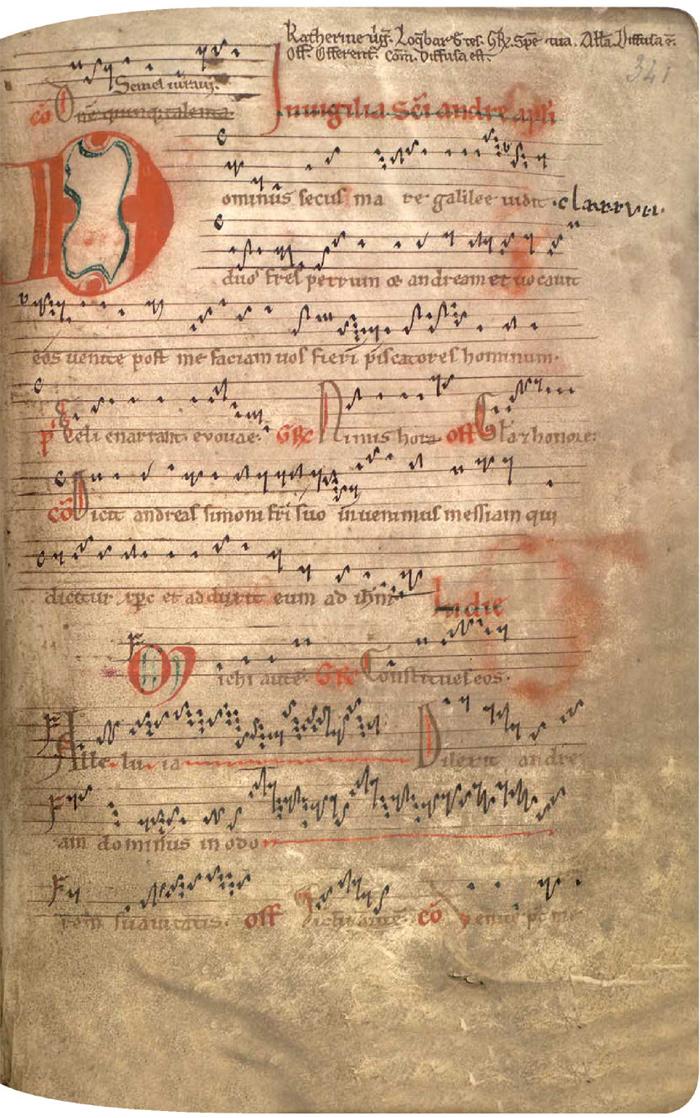 Katherine vig. Loqbar 
Off. Offerent. Com. Diffusa est.
341
Semel iuravi.
cō Dne quinq talenta
In vigilia Sci andree apli
Dominus secus mare galilee vidit
duos fres petrum et andream et vocavit
eos venite post me faciam vos fieri piscatores hominum.
ps Celi enarrant. evovae. Gre Nimis hono off Gla & honore.
cō Dicit andreas simoni fri suo invenimus messiam qui
dicitur xpc et adduxit eum ad ihm In die
Michi aute. Gre Constitues eos.
Alleluia Dilexit andre
am dominus in odo
rem suavitatis. off Michi aute cō Venite pt me